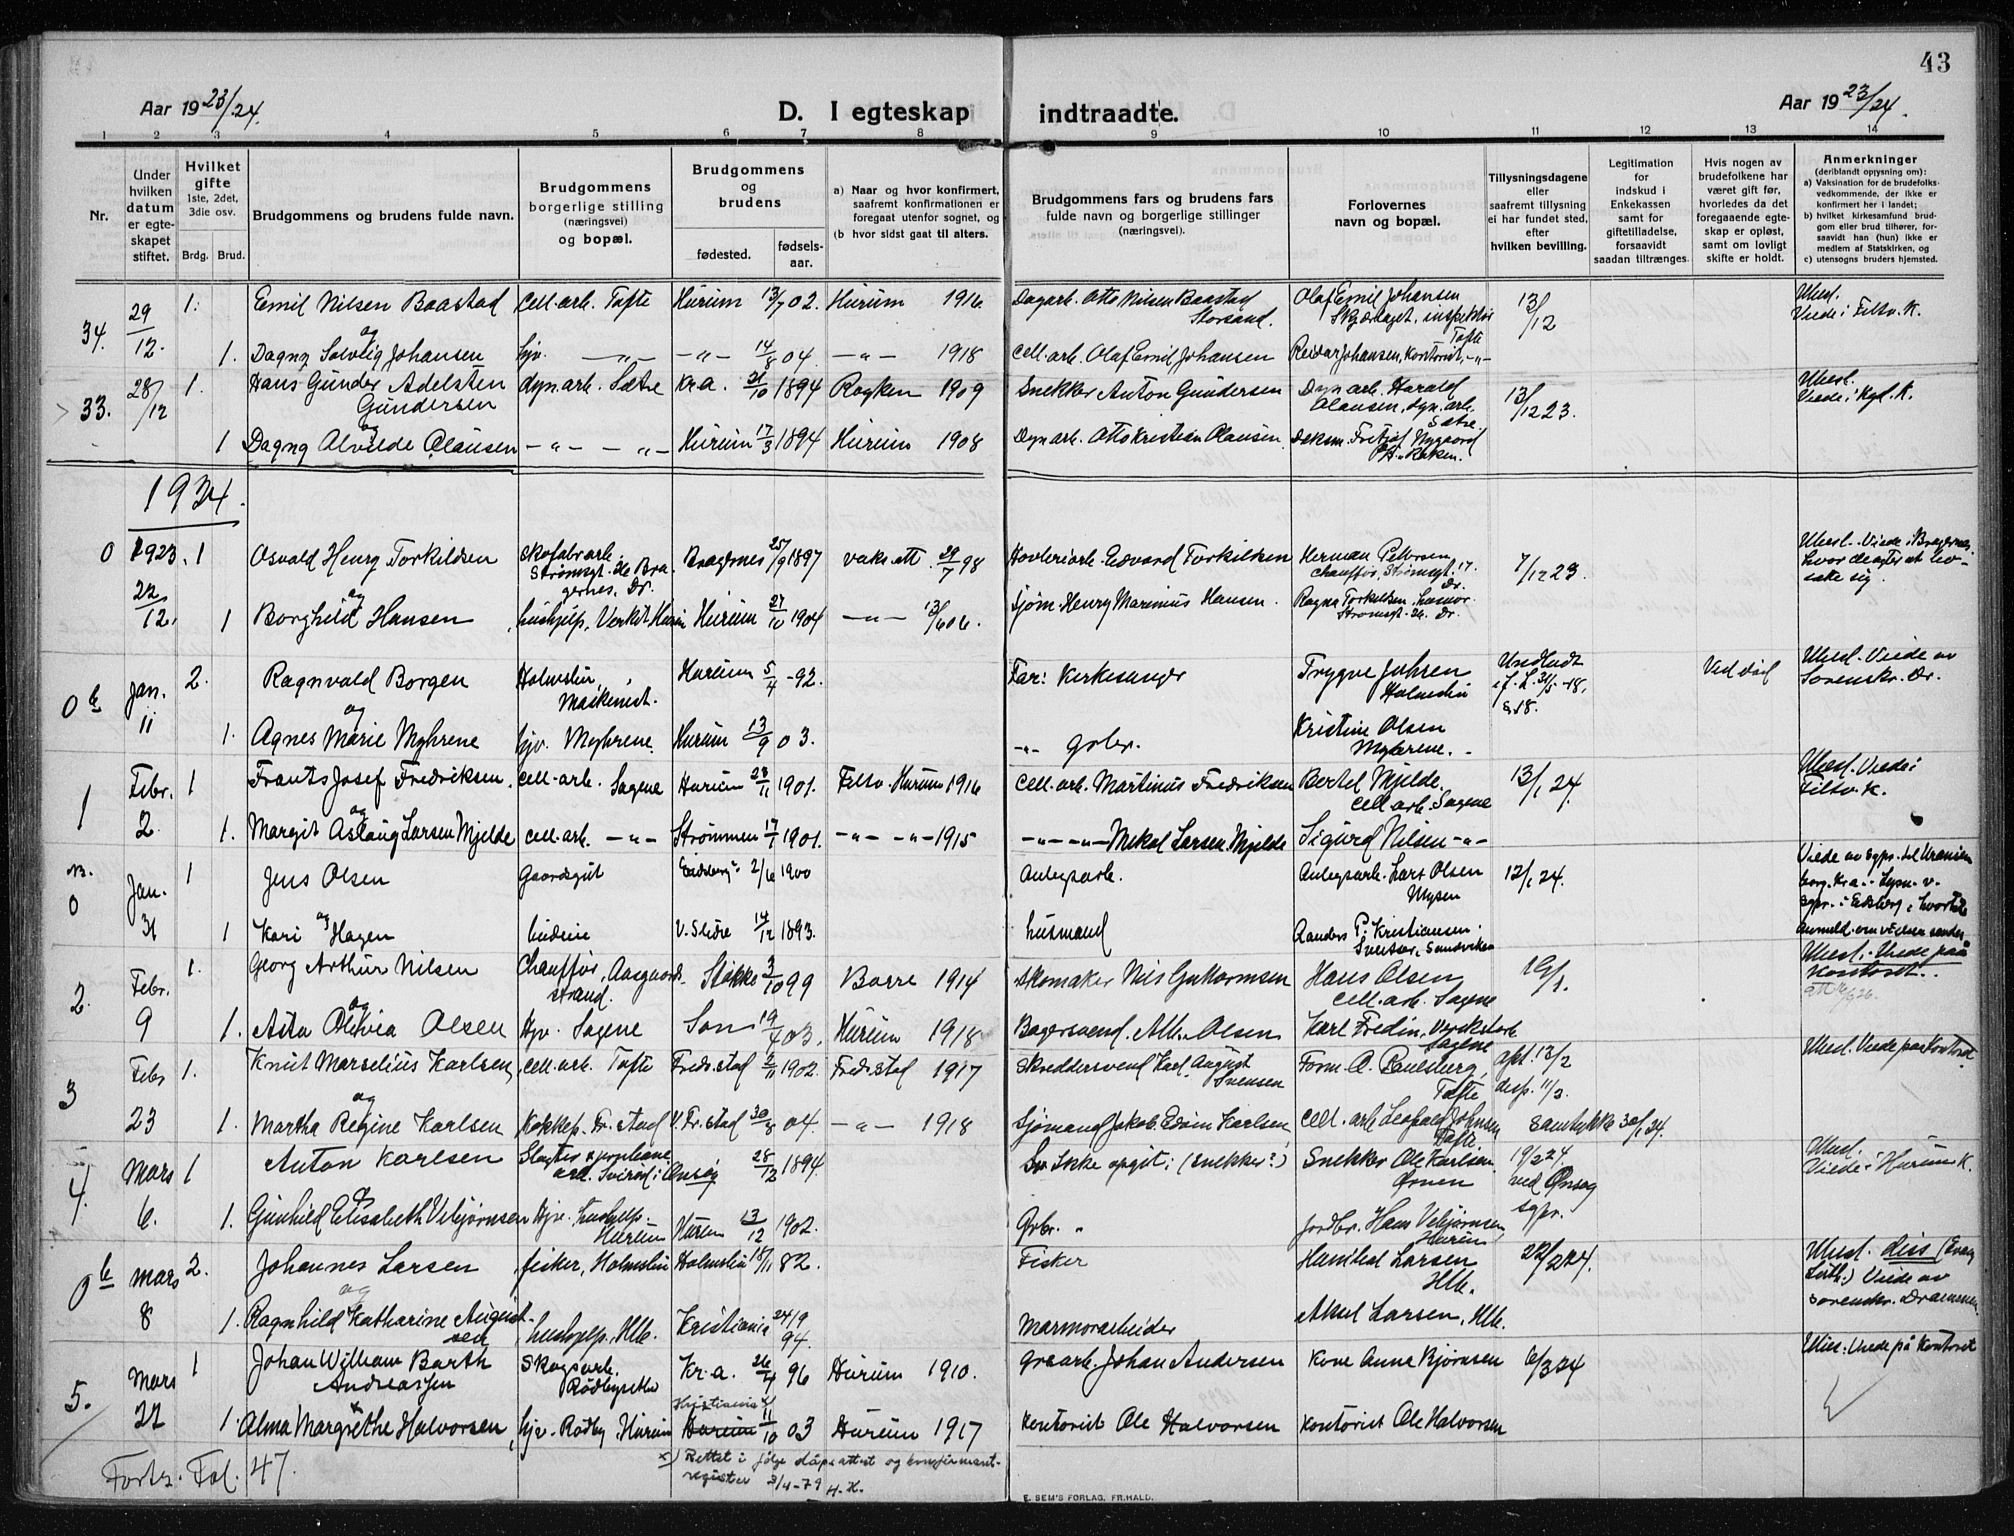 43
Aar 19 23/24.
D. I egteskap indtraadte.
Aar 19 23/24.
1 2 3 4 5 6 7 8 9 10 11 12 13 14
Nr.
Under hvilken datum er egteskapet stiftet.
Hvilket gifte 1ste, 2det, 3die osv.
Brdg. Brud.
Brudgommens og brudens fulde navn.
Brudgommens borgerlige stilling (næringsvei) og bopæl.
Brudgommens og brudens
fødested.
fødsels-aar.
a) Naar og hvor konfirmert, saafremt konfirmationen er foregaat utenfor sognet, og
(b hvor sidst gaat til alters.
Brudgommens fars og brudens fars fulde navn og borgerlige stillinger (næringsvei).
Forlovernes navn og bopæl.
Tillysningsdagene eller saafremt tillysning ei har fundet sted, efter hvilken bevilling.
Legitimation for indskud i Enkekassen samt for giftetilladelse, forsaavidt saadan tiltrænges.
Hvis nogen av brudefolkene har været gift før, hvorledes da det foregaaende egteskap er opløst, samt om lovligt skifte er holdt.
Anmerkninger (deriblandt opysning om):
a) Vaksination for de brudefolks vedkommende, der ikke er konfirmert her i landet;
b) hvilket kirkesamfund brudgom eller brud tilhører, forsaavidt han (hun) ikke er medlem af Statskirken, og
c) utensogns bruders hjemsted.
34. 29/12. 1. Emil Nilsen Baastad cell.arb. Tofte Hurum 13/7 02. Hurum 1916 Dagarb. Otto Nilsen Baastad Storsand. Olaf Emil Johansen Skjærhaget, inspektør Tofte 13/12 Uhesl. Viede i Filtv. K.
og
1. Dagny Solveig Johansen hjv. —"— —"— 14/8 04. —"— 1918 cell.arb. Olaf Emil Johansen Reidar Johansen, kontorist, —"—
33. 28/12 1. Hans Gunder Adelsten Gundersen dyn.arb. Sætre Kr.a. 21/10 1894 Røyken 1909 Snekker Anton Gundersen Dyn.arb. Harald Clausen, dyn.arb. Sætre. 13/12 23. Uhesl. Viede i Kgl. K.
og
1 Dagny Alvilde Clausen —"— —"— Hurum 17/3 1894 Hurum 1908 Dynarb. Otto Kristian Clausen
1924.
0 1923. 22/12. 1 Osvald Henry Torkildsen skofabr.arb. Strømsgt. 26 Bragernes, Dr. Bragernes 25/9 1897 vaks.att. 29/7 98 Høvleriarb. Edvard Torkildsen Herman Pettersen chauffør, Strømsgt. 17. Dr. 7/12 23. Uhesl. Viede i Bragernes, hvor de agter at bosætte sig.
og
1 Borghild Hansen hushjelp, Verket Hurum Hurum 27/10 1904 —"— 13/6 06. Sjøm. Henry Marinius Hansen. Ragna Torkildsen, husmor. Strømsgt. 26. Dr.
0b Jan. 11 2. Ragnvald Borgen Holmsbu, Maskinist. Hurum 5/4 -92. Far: Kirkesanger Trygve Juhsen Holmsbu Undladt e.f. L. 31/5 -18. § 18. Ved død Uhesl. Viede av Sorenskr. Dr.
og
1. Agnes Marie Myhrene hjv. Myhrene. Hurum 13/9 03. —"— grbr. Kristine Olsen Myhrene.
1 Febr. 2. 1 Frants Josef Fredriksen. cell.arb. Sagene Hurum 28/11 1901. Filtv. Hurum 1916 cell.arb. Martinus Fredriksen Bertel Mjelde. cell.arb. Sagene 13/1 24. Uhesl. Viede i Filtv. K.
og
1. Margit Aslaug Larsen Mjelde cell.arb. —"— Strømmen 17/7 1901. —"— —"— 1915 —"— —"— Mikal Larsen Mjelde Sigurd Nilsen —"—
0 Jan. 31 1 Jens Olsen Gaardsgut Eidsberg 2/6 1900 Anlegsarb. Anlegsarb. Lars Olsen Mysen 12/1 24. Viede av sgpr. til Uranienborg, Kr.a. Lysn. v. sgpr. i Eidsberg, hvortil anmeld. om vielsen sendes
og
1 Kari Hagen budeie V. Slidre 14/12 1893. husmand Randers P. Kristiansen. Sveitser, Sandviken
2. Febr. 9 1. Georg Arthur Nilsen Chauffør, Aasgaardsstrand. Stokke 3/10 99 Borre 1914 Skomaker Nils Guttormsen Hans Olsen cell.arb. Sagene Uhesl. Viede paa kontoret.
og
1. Asta Olivia Olsen Hjv. Sagene Son 19/4 03. Hurum 1918 Bagersvend. Alb. Olsen Karl Fredin, Verkstarb. Sagene
3 Febr. 23 1. Knut Marselius Karlsen, cell.arb. Tofte Fredr.stad 2/11 1902. Fredr.stad 1917 Skreddersvend Karl August Svensen Form. A. Paulsberg, Tofte opl. 13/2 desp. 11/2. Uhesl. Viede paa kontoret.
og
1. Martha Regine Karlsen Kokkep. Fr.stad V. Fr.stad 30/8 04. —"— 1918 Sjømand Jakob Edvin Karlsen cell.arb. Leopold Johnsen Tofte. Samtykke 30/1 24.
4. Mars 6. 1 Anton Karlsen Onsøy 28/12 1894. Ikke opgit; (Snekker?) Snekker Ole Karlsen Ørnen 19/2 24. ved Onsøy sgpr. Uhesl. Viede i Hurum K.
og
1. Gunhild Elisabeth Vebjørnsen Hjv. hushjelp. Hurum Hurum 13/12 1902. Grbr. " Jordbr. Hans Vebjørnsen, Hurum
0b Mars 8 2. Johannes Larsen fisker, Holmsbu Holmsbu 18/11 82. Fisker Harald Larsen Hlb. 22/2 24. Uhesl. diss (Evang. Luth.) Viede av sorenskr. Drammen.
og
1. Ragnhild Katharine Augustsen, hushjelp, Hlb. Kristiania 24/9 94. Marmorarbeider Aksel Larsen, Hlb.
5. Mars 22 1 Johan William Barth Andreassen Skogsarb. Rødbysetra Kr.a. 26/4 96 Hurum 1910. grarb. Johan Andersen Kone Anna Bjørnsen 6/3 24 Uhes. Viede på kontoret
1. Alma Margrethe Halvorsen, hjv. Rødby, Hurum Kristiania x) Hurum 11/10 03 Hurum 1917 Kontorist Ole Halvorsen Kontorist Ole Halvorsen
Forts. Fol. 47.
x) Rettet i følge dåpsattest og konfirmantregister 3/4-79 H.K.
E. SEM'S FORLAG, FR.HALD.